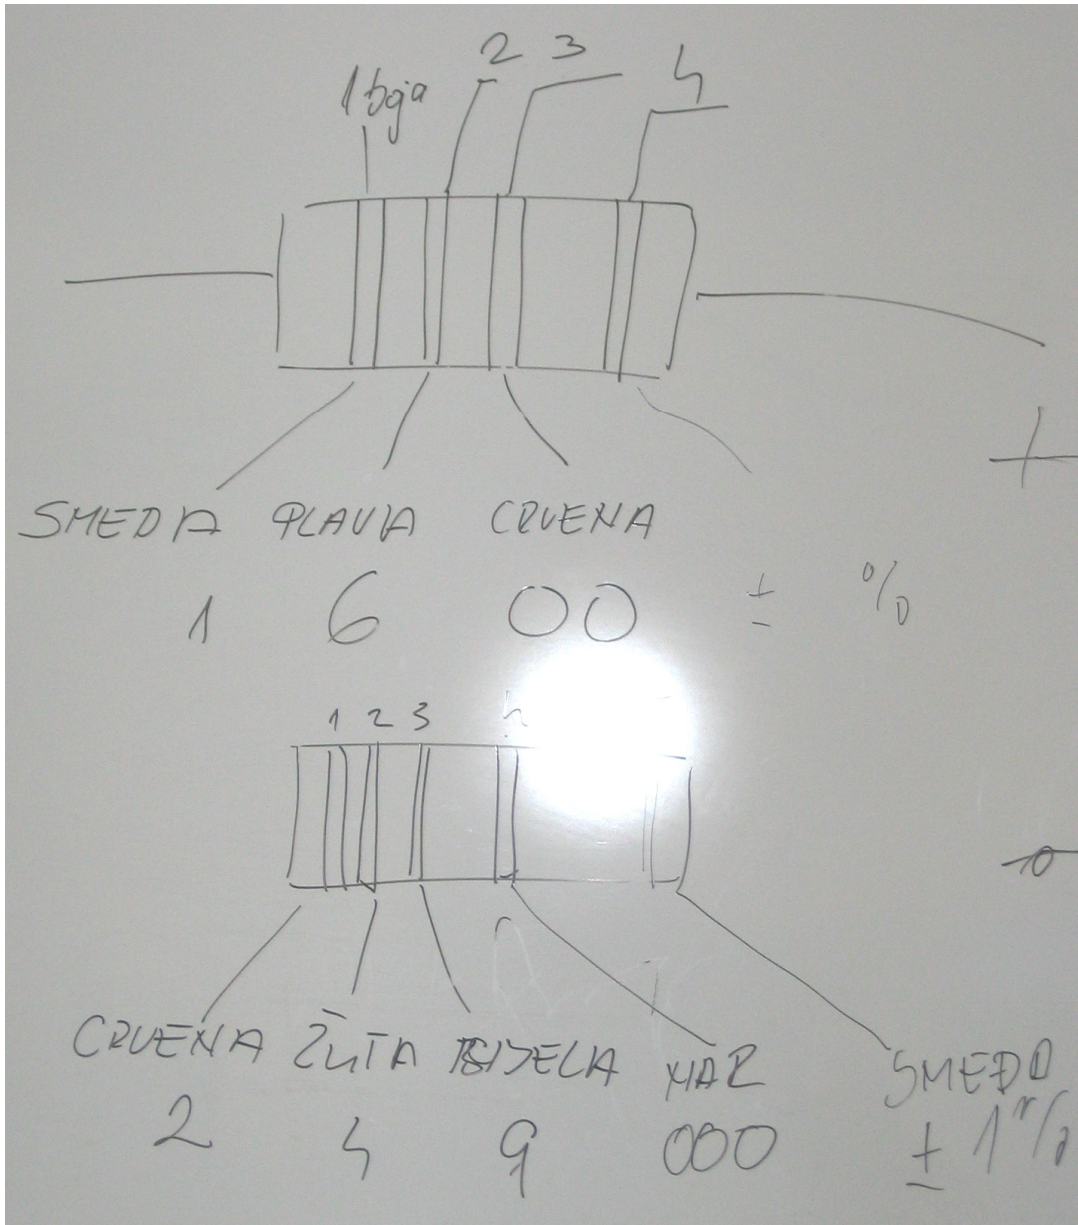 1 boja 2 3 4
SMEĐA PLAVA CRVENA
1 6 00 ± %
1 2 3 4
CRVENA ŽUTA BIJELA NAR SMEĐA
2 4 9 000 ± 1%